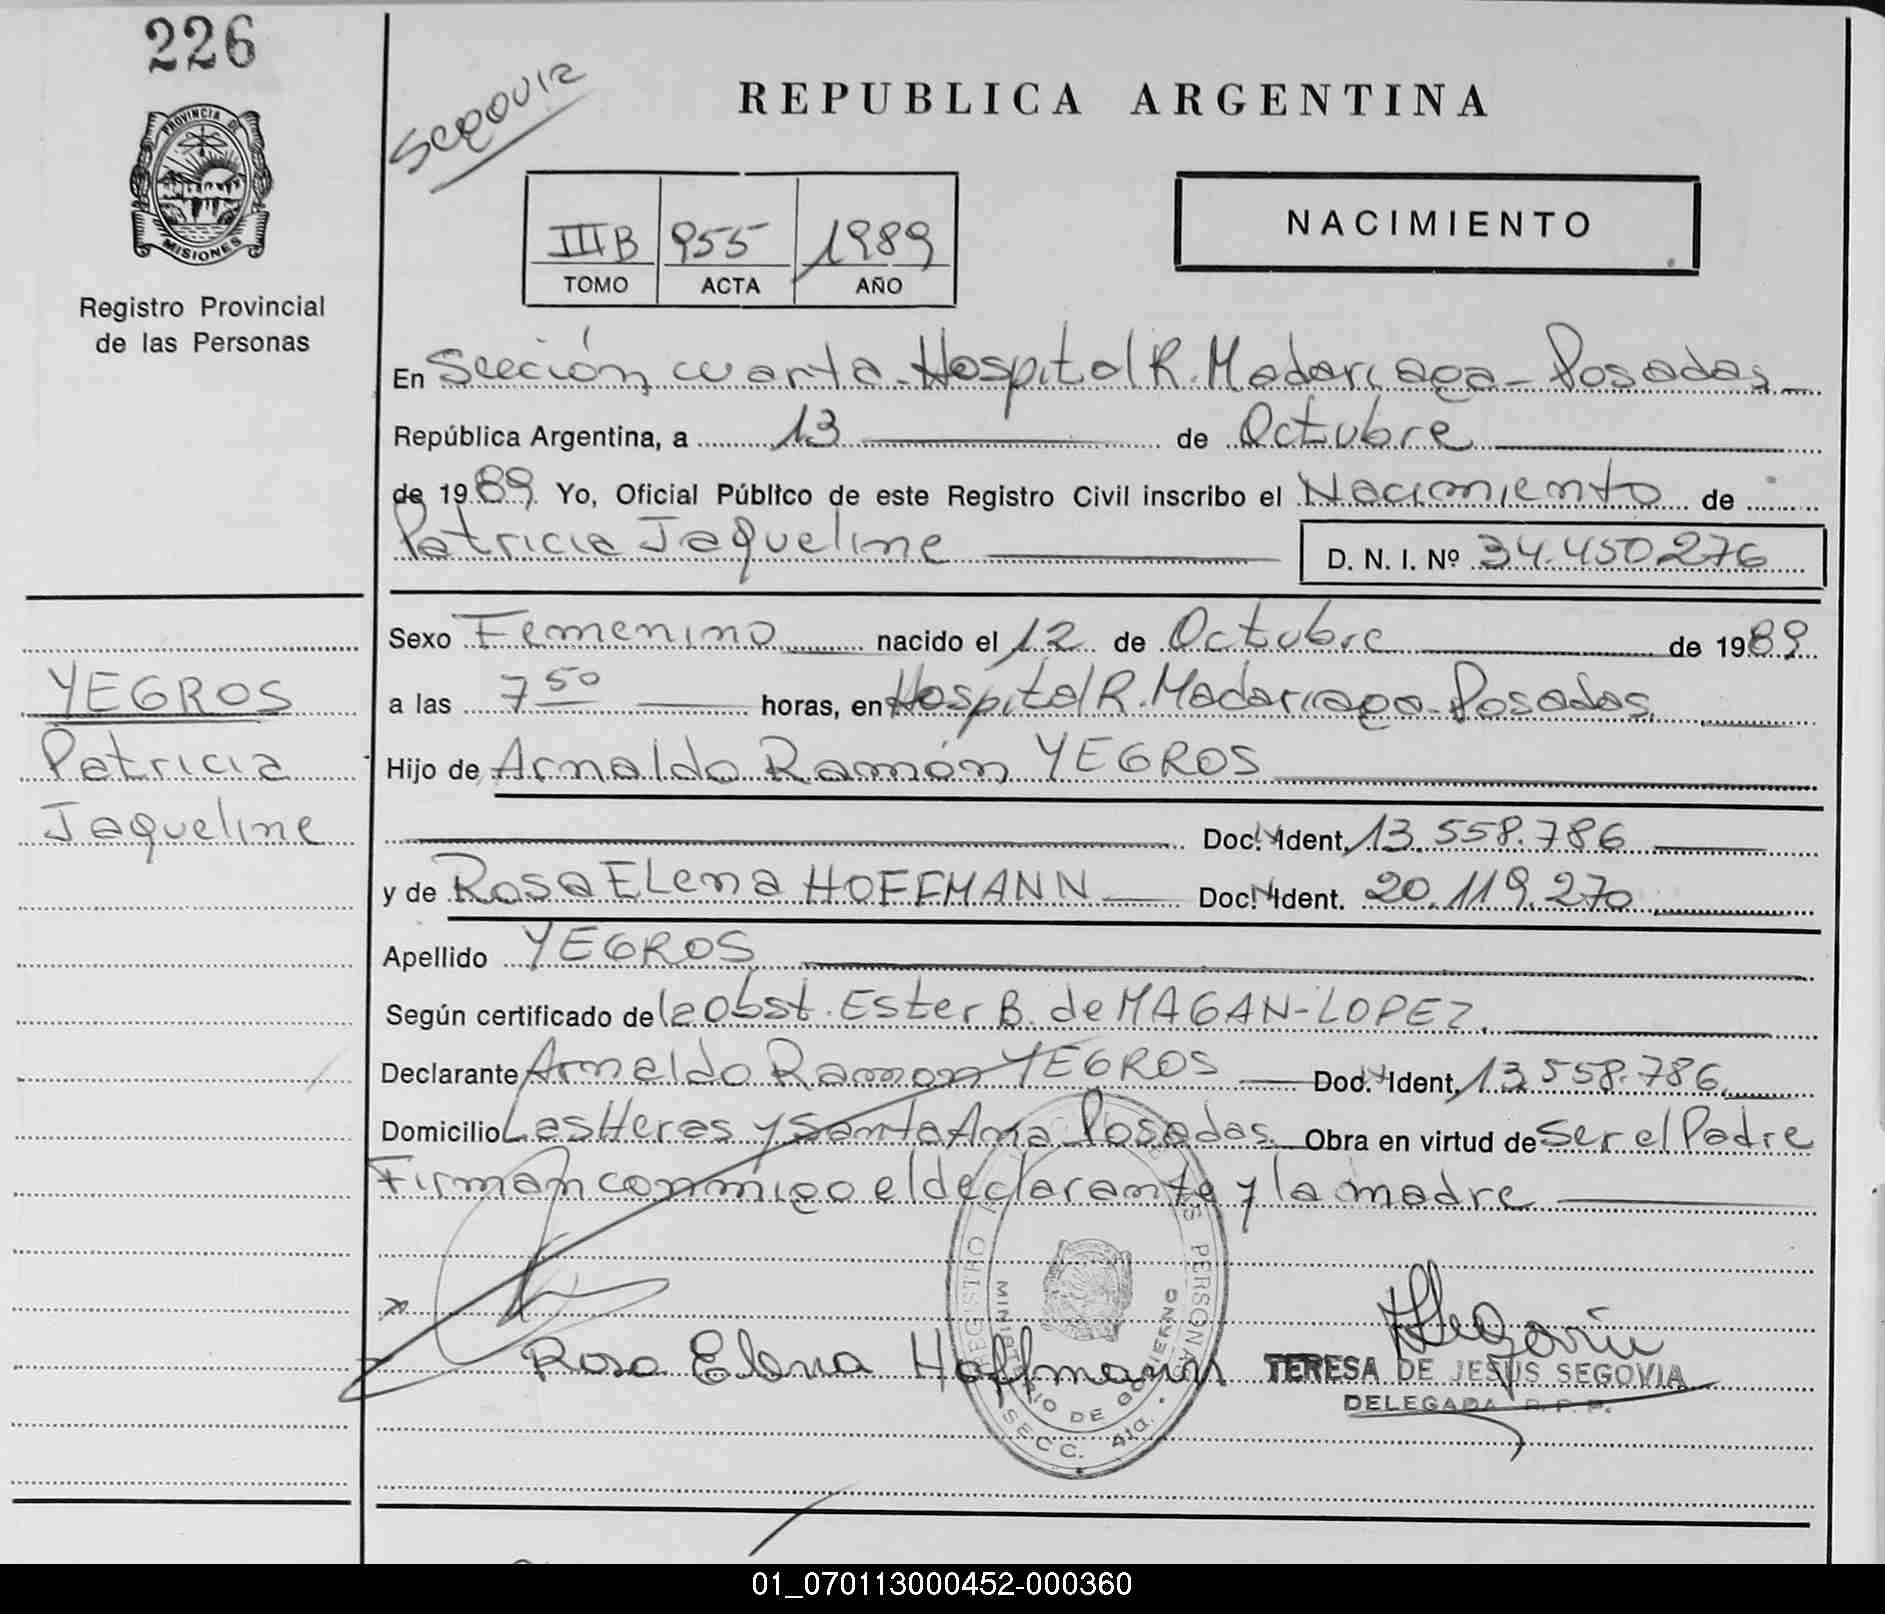 226
PROVINCIA DE
MISIONES
Registro Provincial
de las Personas
REPUBLICA ARGENTINA
III B 955 1989
TOMO ACTA AÑO
NACIMIENTO
En Sección cuarta-Hospital R. Madariaga-Posadas
República Argentina, a 13 de Octubre
de 1989 Yo, Oficial Público de este Registro Civil inscribo el Nacimiento de
Patricia Jaqueline D. N. I. Nº 34.450276
Sexo Femenino nacido el 12 de Octubre de 1989
YEGROS
Patricia
Jaqueline
a las 7 50 horas, en Hospital R. Madariaga-Posadas
Hijo de Arnaldo Ramón YEGROS
Doc. Ident. 13.558.786
y de Rosa Elena HOFFMANN Doc. Ident. 20.119.270
Apellido YEGROS
Según certificado de la Obst. Ester B. de MAGAN-LOPEZ.
Declarante Arnaldo Ramon YEGROS Doc. Ident. 13.558.786
Domicilio Las Heras y Santa Ana Posadas Obra en virtud de ser el Padre
Firman conmigo el declarante y la madre
Rosa Elena Hoffmann
REGISTRO PERSONAS
MINISTERIO DE GOBIERNO
SECC. 4ta.
TERESA DE JESUS SEGOVIA
DELEGADA R. P. P.
01_070113000452-000360